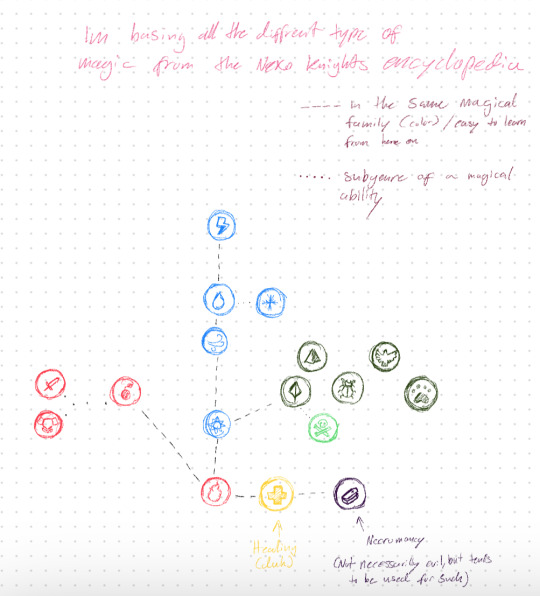 Im basing all the diffrent type of
magic from the Nexo Knights encyclopedia
---- in the same magical
family (color) / easy to learn
from here on
..... subgenre of a magical
ability
Healing
(duh)
Necromancy.
(Not necessarily evil, but tends
to be used for such)